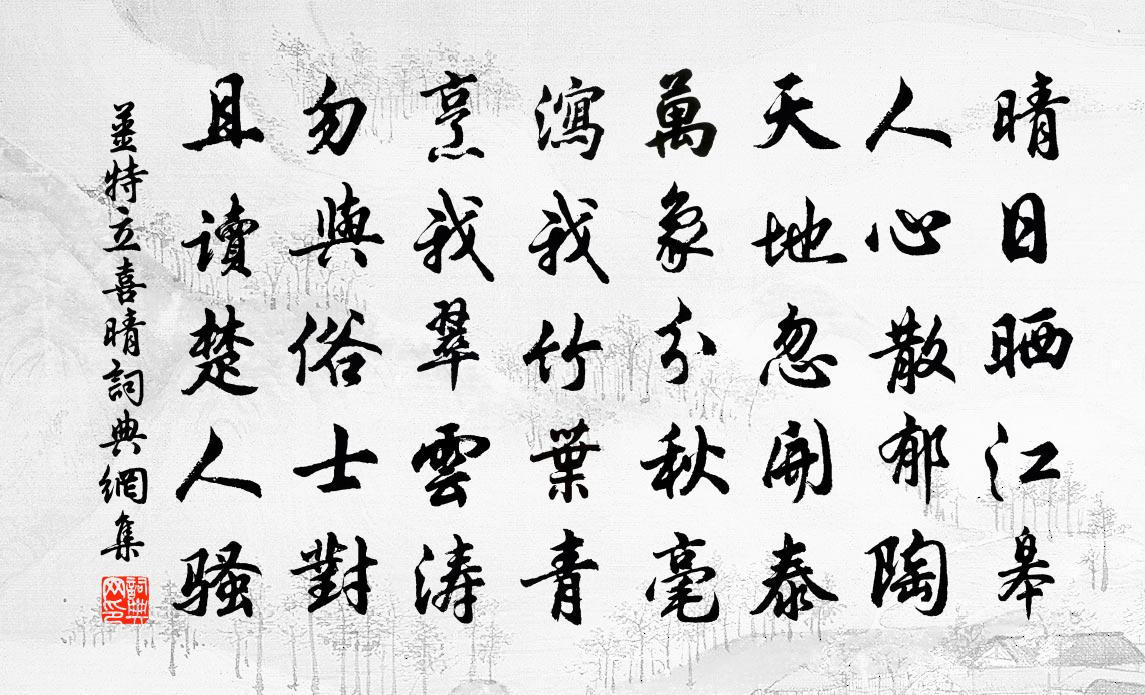 晴日晒江皋
人心散郁陶
天地忽開泰
萬象分秋毫
瀉我竹葉青
烹我翠雲濤
勿與俗士對
且讀楚人騷
姜特立喜晴詞典網集
詞典網印